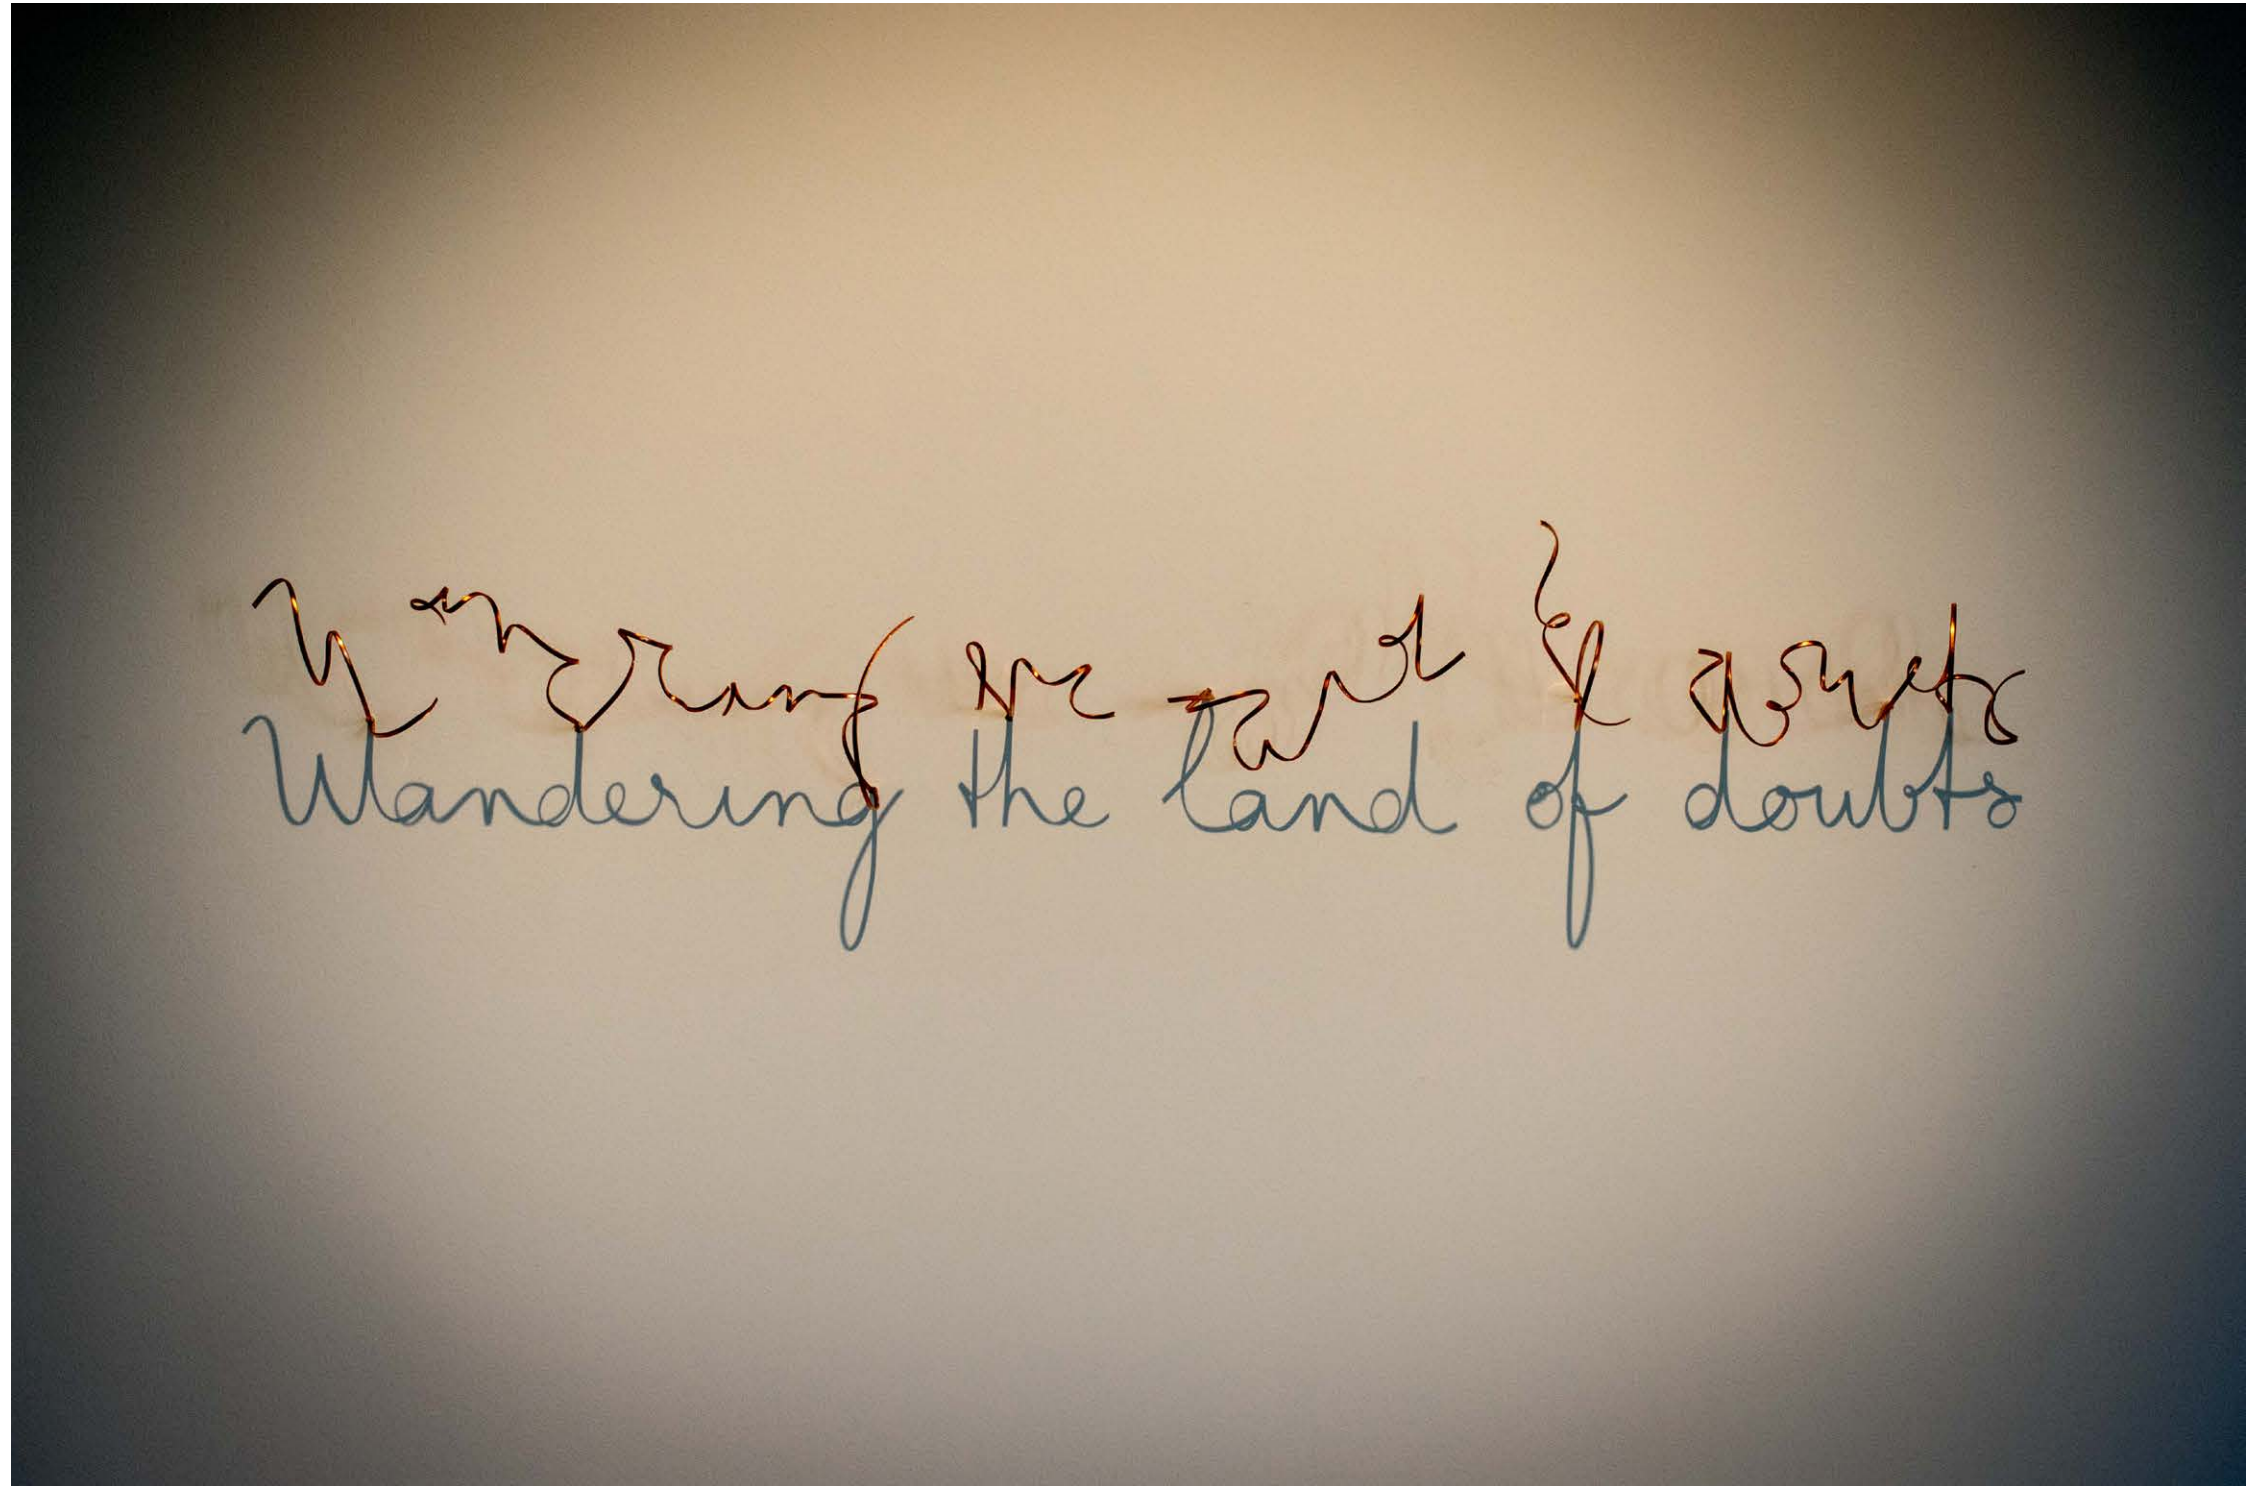 Wandering the land of doubts